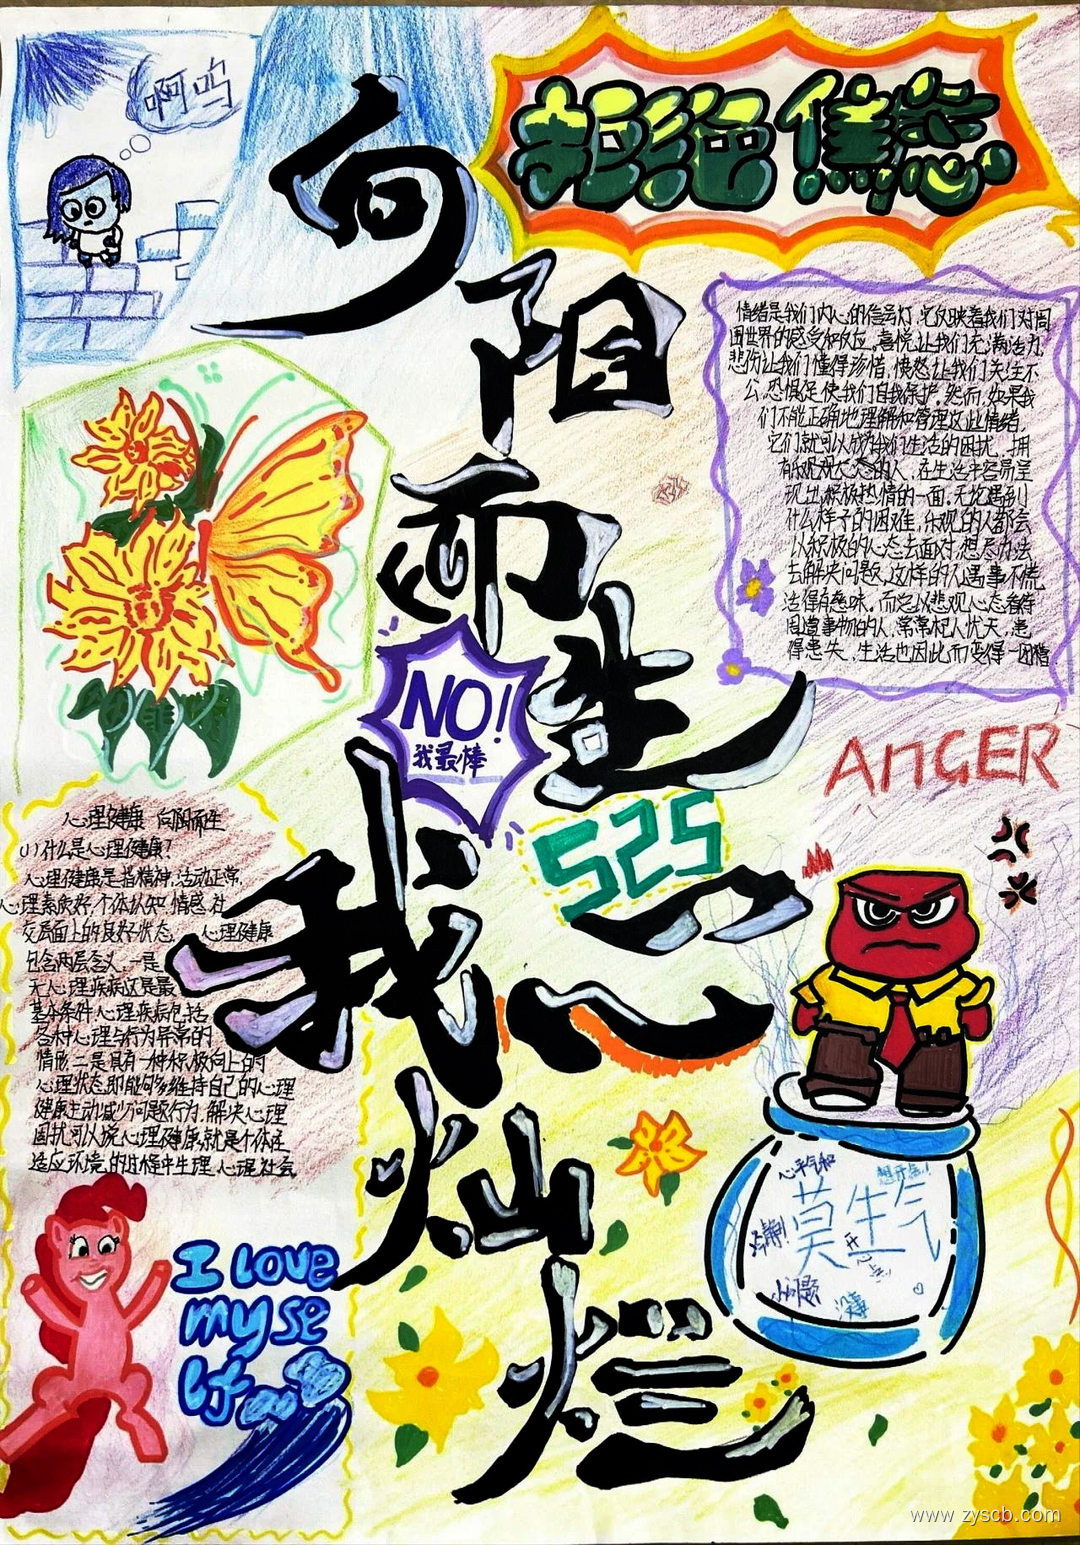 啊呜
向阳而生
我心灿烂
拒绝焦虑
情绪是我们内心的信号灯,它反映着我们对周
围世界的感受和反应。喜悦让我们充满活力,
悲伤让我们懂得珍惜,愤怒让我们关注不
公,恐惧促使我们自我保护。然而,如果我
们不能正确地理解和管理这些情绪,
它们就可以成为我们生活的困扰,拥
有乐观心态的人,在生活中容易呈
现出积极热情的一面,无论遇到
什么样子的困难,乐观的人都会
以积极的心态去面对,想尽办法
去解决问题,这样的人遇事不慌,
活得有趣味,而总以悲观心态看待
周遭事物的人,常常杞人忧天,患
得患失,生活也因此而变得一团糟
NO!
我最棒
525
ANGER
心理健康 向阳而生
(1)什么是心理健康?
心理健康是指精神,活动正常,
心理素质好,个体认知,情感,社
交层面上的良好状态, 心理健康
包含两层含义,一是
无心理疾病这是最
基本条件心理疾病包括
各种心理与行为异常的
情形,二是具有一种积极向上的
心理状态,即能够维持自己的心理
健康主动减少问题行为,解决心理
困扰可以说,心理健康,就是个体在
适应环境的过程中生理,心理,社会
心平气和
想开点!
莫生气
冷静!
开心点!
小问题
没事
I love
myse
lf
www.zyscb.com